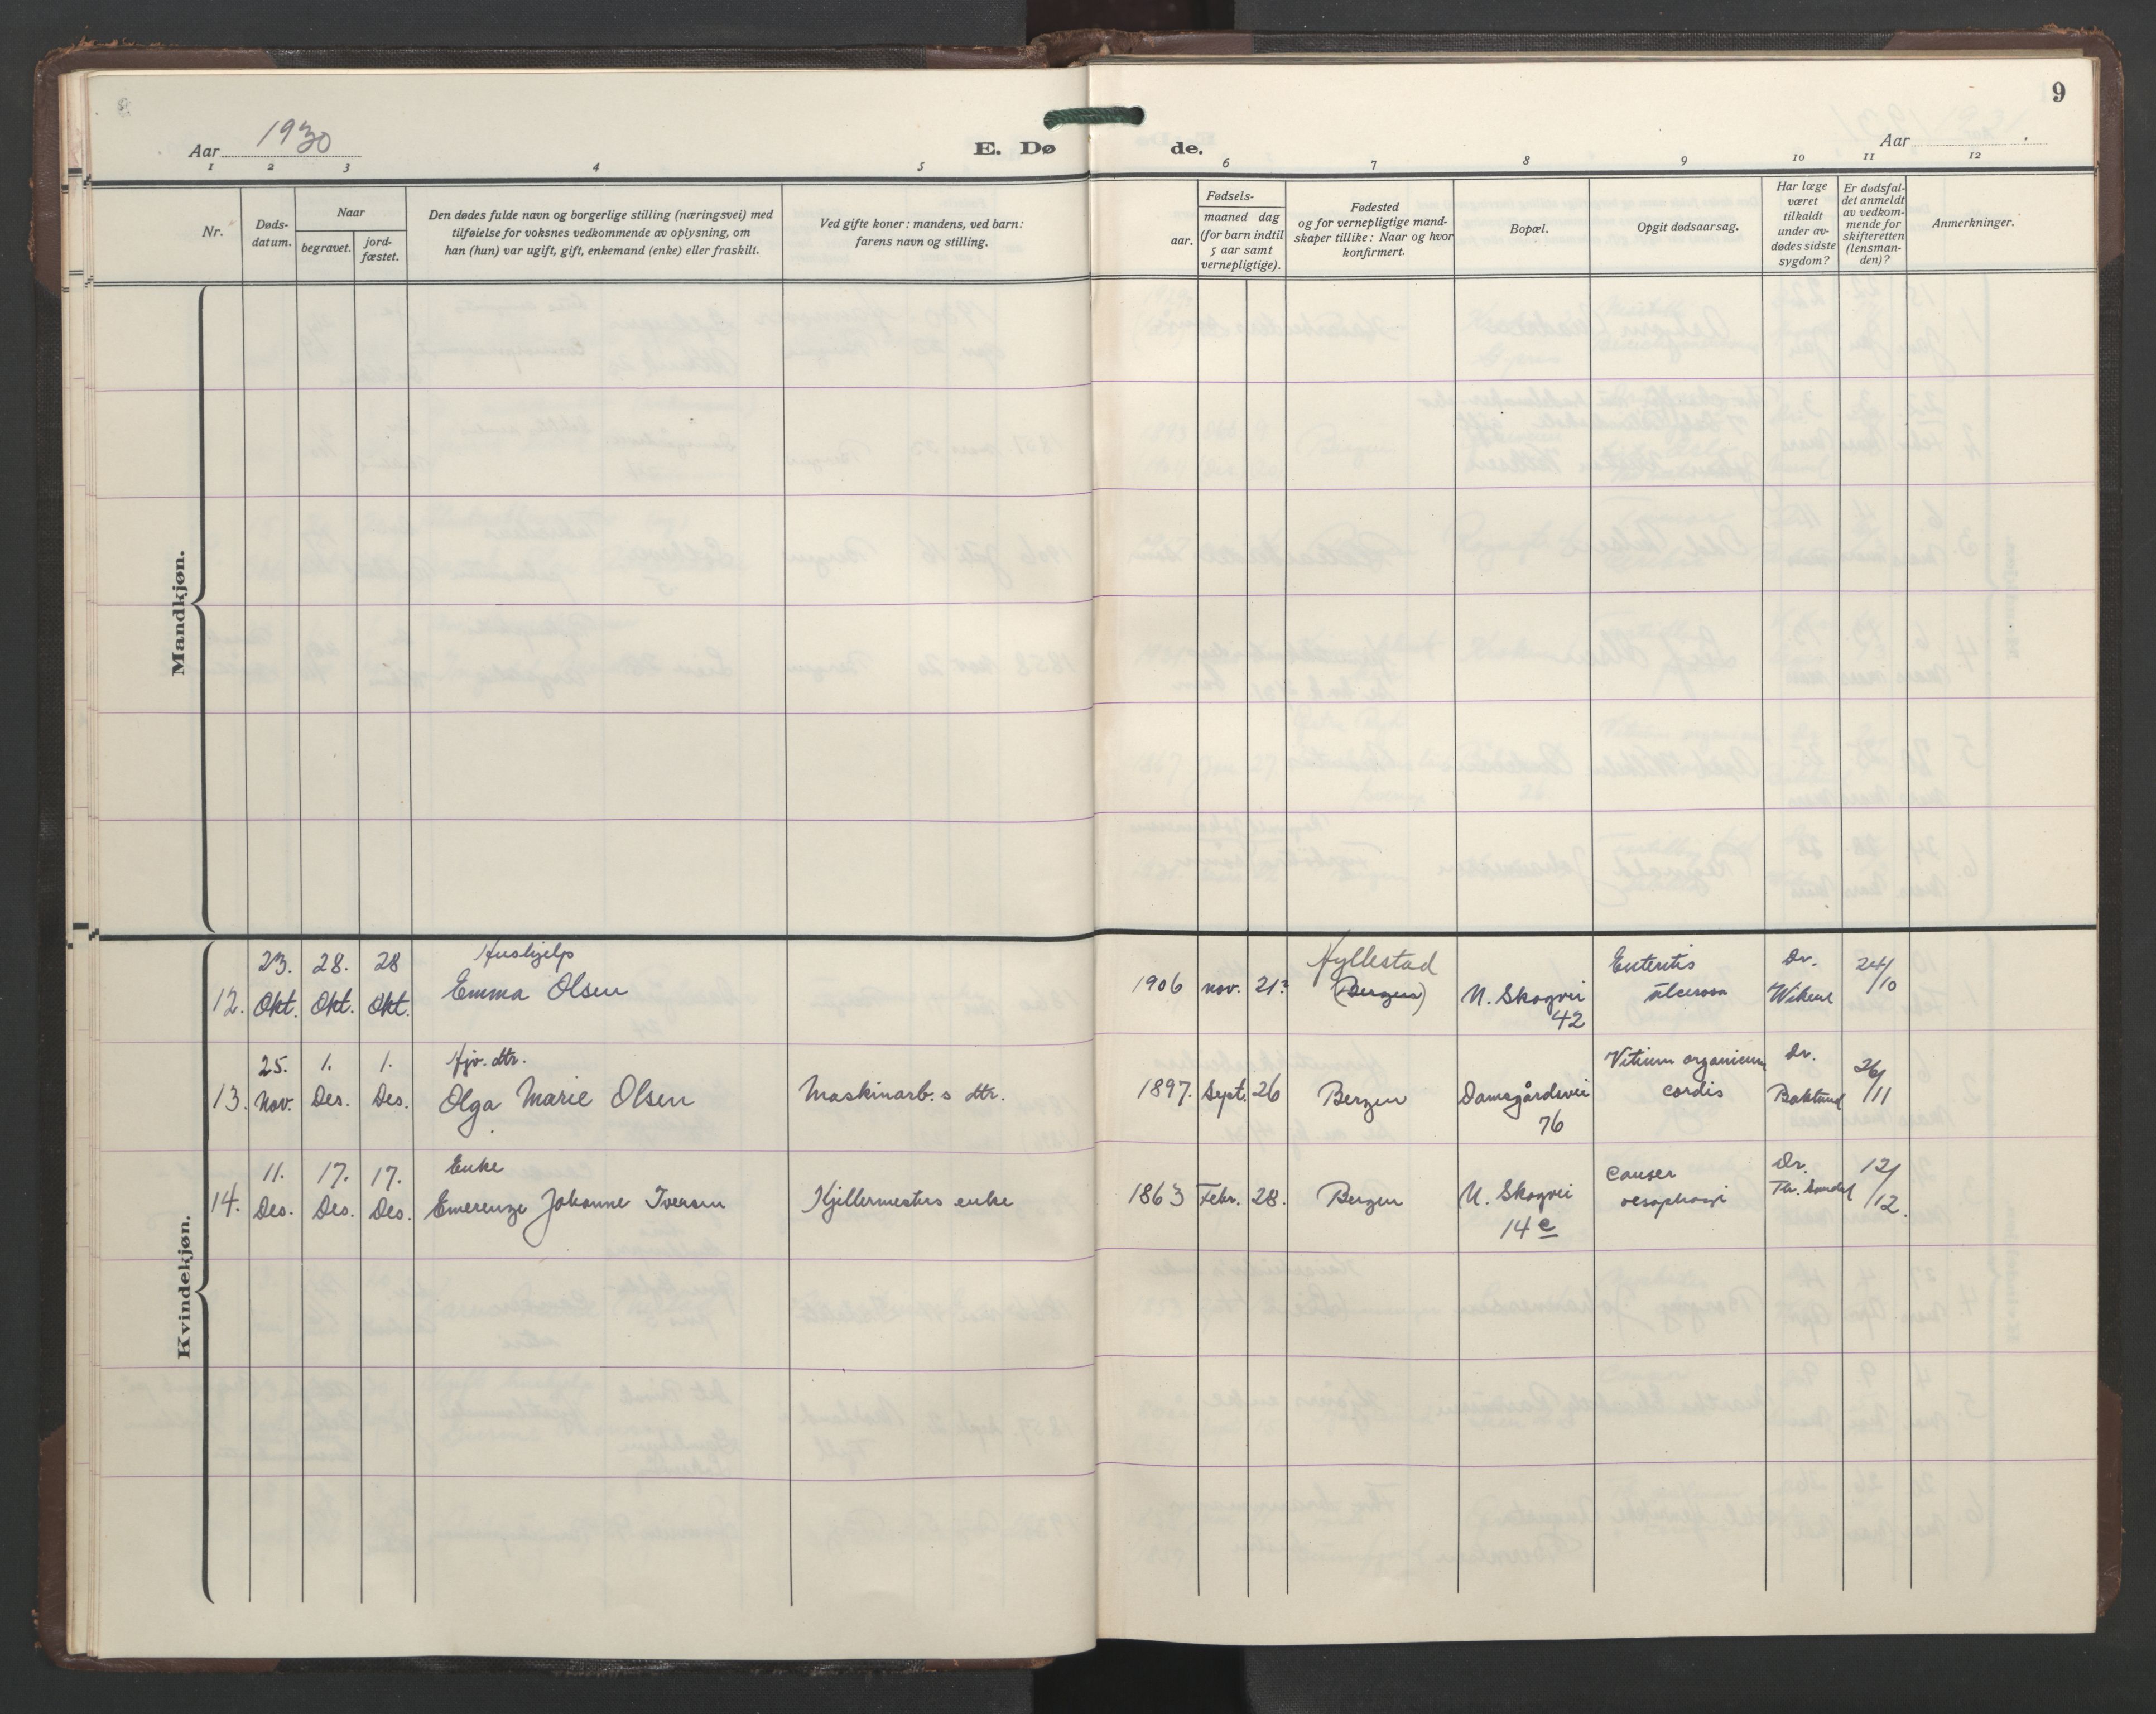 8
9
Aar 1930
E. Dø
de.
Aar
1 2 3 4 5 6 7 8 9 10 11 12
Nr.
Døds-
datum.
Naar
begravet.
jord-
fæstet.
Den dødes fulde navn og borgerlige stilling (næringsvei) med
tilføielse for voksnes vedkommende av oplysning, om
han (hun) var ugift, gift, enkemand (enke) eller fraskilt.
Ved gifte koner: mandens, ved barn:
farens navn og stilling.
Fødsels-
aar.
maaned dag
(for barn indtil
5 aar samt
vernepligtige).
Fødested
og for vernepligtige mand-
skaper tillike: Naar og hvor
konfirmert.
Bopæl.
Opgit dødsaarsag.
Har læge
været
tilkaldt
under av-
dødes sidste
sygdom?
Er dødsfal-
det anmeldt
av vedkom-
mende for
skifteretten
(lensman-
den)?
Anmerkninger.
Mandkjøn.
Kvindekjøn.
23. 28. 28 Hushjelp Hyllestad Enteritis Dr. 24/10
12. Okt. Okt. Okt. Emma Olsen 1906 nov. 21 (Bergen) N. Skogvei ulcerosa
42
25. 1. 1. Hjv. dtr. Vitium organicum Dr. 26/11
13. Nov. Des. Des. Olga Marie Olsen Maskinarb.s dtr. 1897. Sept. 26 Bergen Damsgårdsvei cordis
76
11. 17. 17. Enke Cancer Dr. 12/12.
14. Des. Des. Des. Emerenze Johanne Iversen Kjellermesters enke 1863 Febr. 28. Bergen N. Skogvei oesophagi
14 c